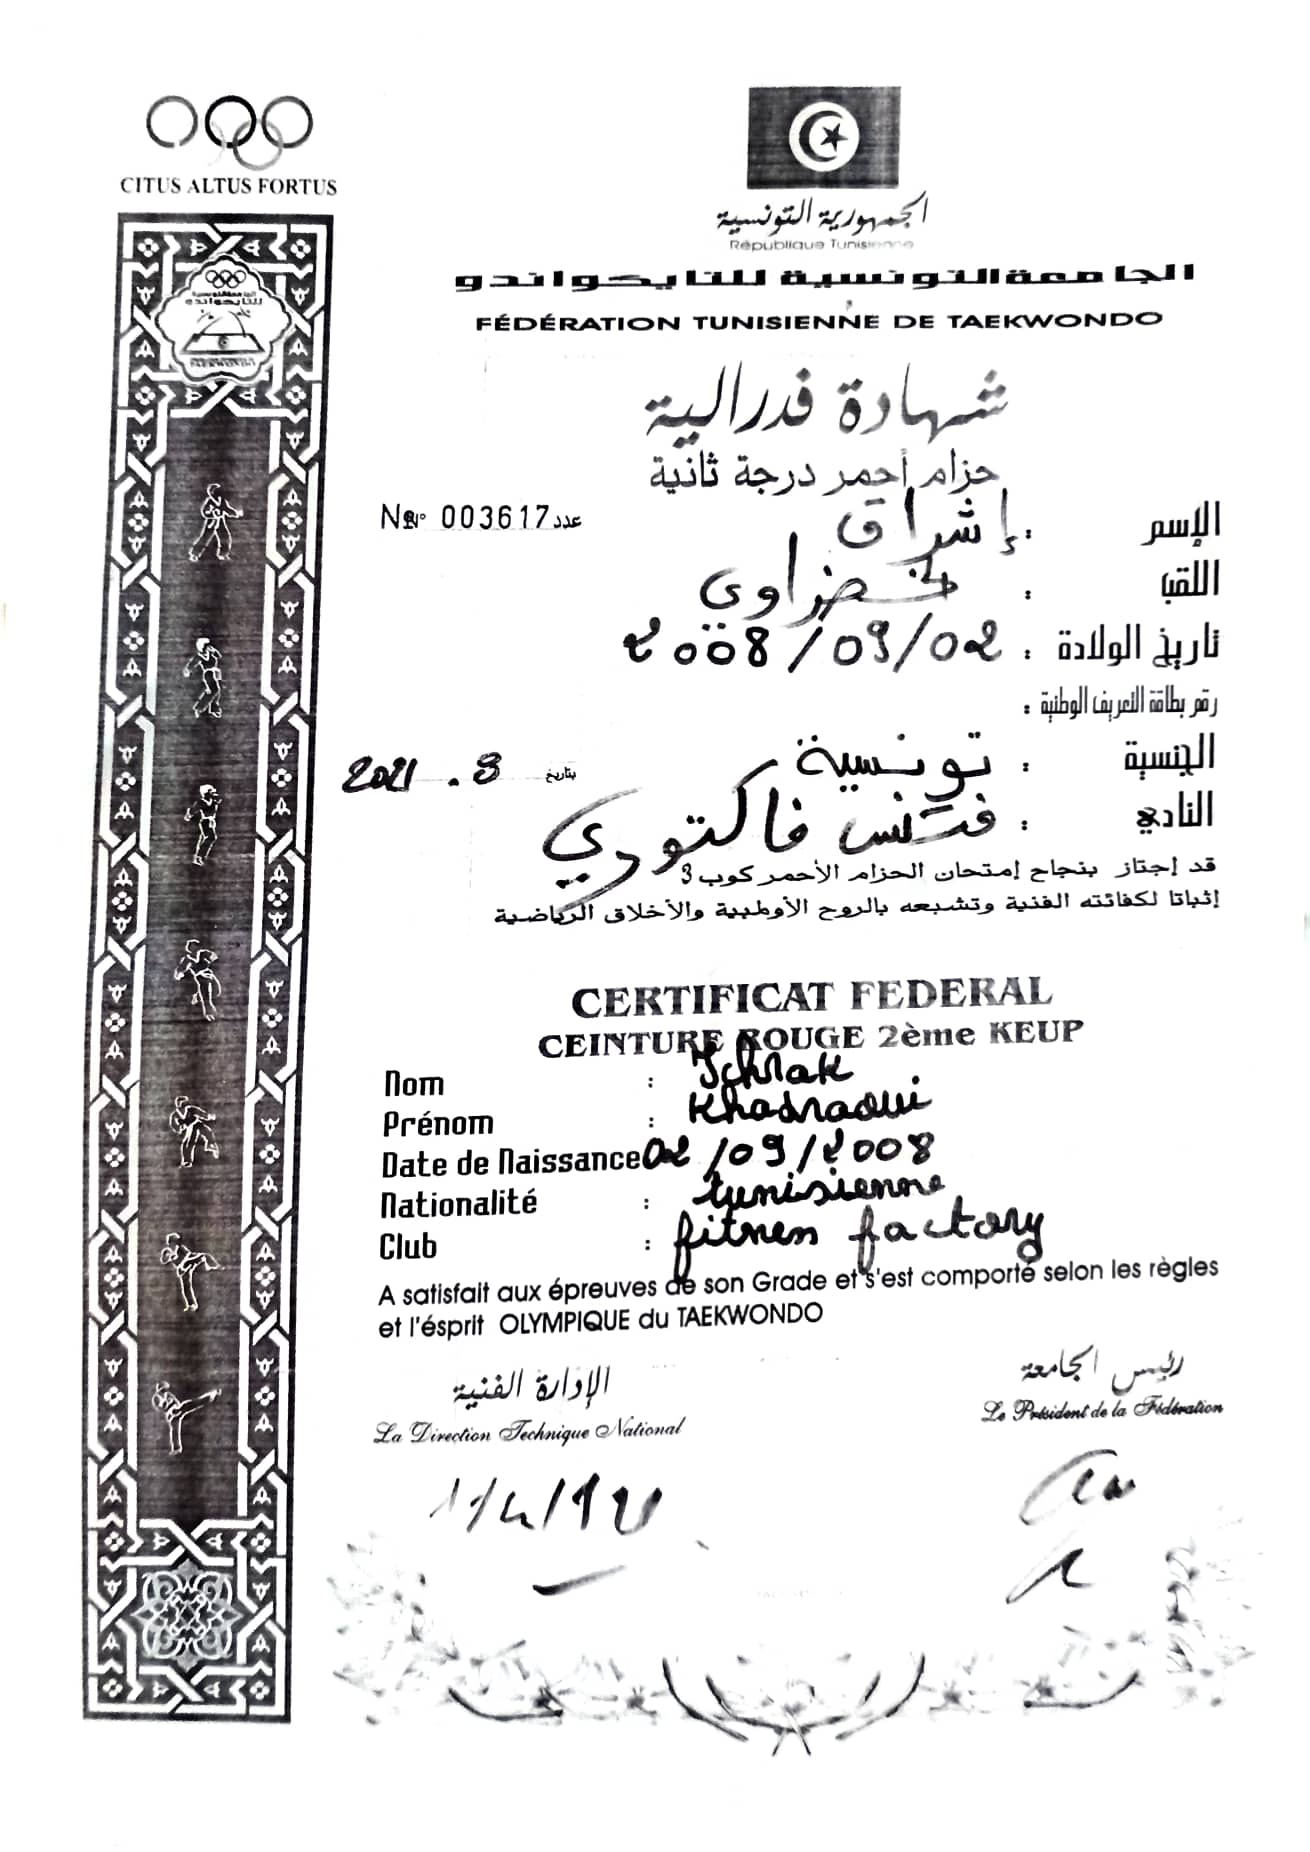 CITUS ALTUS FORTUS
الجمهورية التونسية
République Tunisienne
الجامعة التونسية للتايكواندو
FÉDÉRATION TUNISIENNE DE TAEKWONDO
شهادة فدرالية
حزام أحمر درجة ثانية
N° 003617 عدد
الإسم : إشراق
اللقب : لخضراوي
تاريخ الولادة : 02/09/2008
رقم بطاقة التعريف الوطنية :
الجنسية : تونسية
بتاريخ 3. 2021
النادي : فتنس فاكتوري
قد إجتاز بنجاح إمتحان الحزام الأحمر كوب 3
إثباتا لكفائته الفنية وتشبعه بالروح الأولمبية والأخلاق الرياضية
CERTIFICAT FEDERAL
CEINTURE ROUGE 2ème KEUP
Nom : Ichrak
Prénom : Khadraoui
Date de Naissance 02/09/2008
Nationalité : tunisienne
Club : fitness factory
A satisfait aux épreuves de son Grade et s'est comporté selon les règles
et l'ésprit OLYMPIQUE du TAEKWONDO
الإدارة الفنية
La Direction Technique National
رئيس الجامعة
Le Président de la Fédération